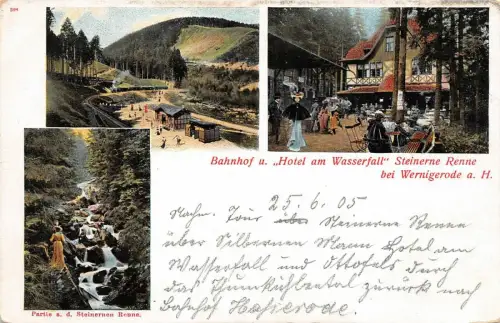 Bahnhof u. „Hotel am Wasserfall" Steinerne Renne
bei Wernigerode a. H.
25.6.05
Nachm. Tour über Steinerne Renne
über Silbernen Mann Hotel am
Wasserfall und Ottofels durch
das Thumkuhlental zurück nach
Bahnhof Hasserode.
Partie a. d. Steinernen Renne.